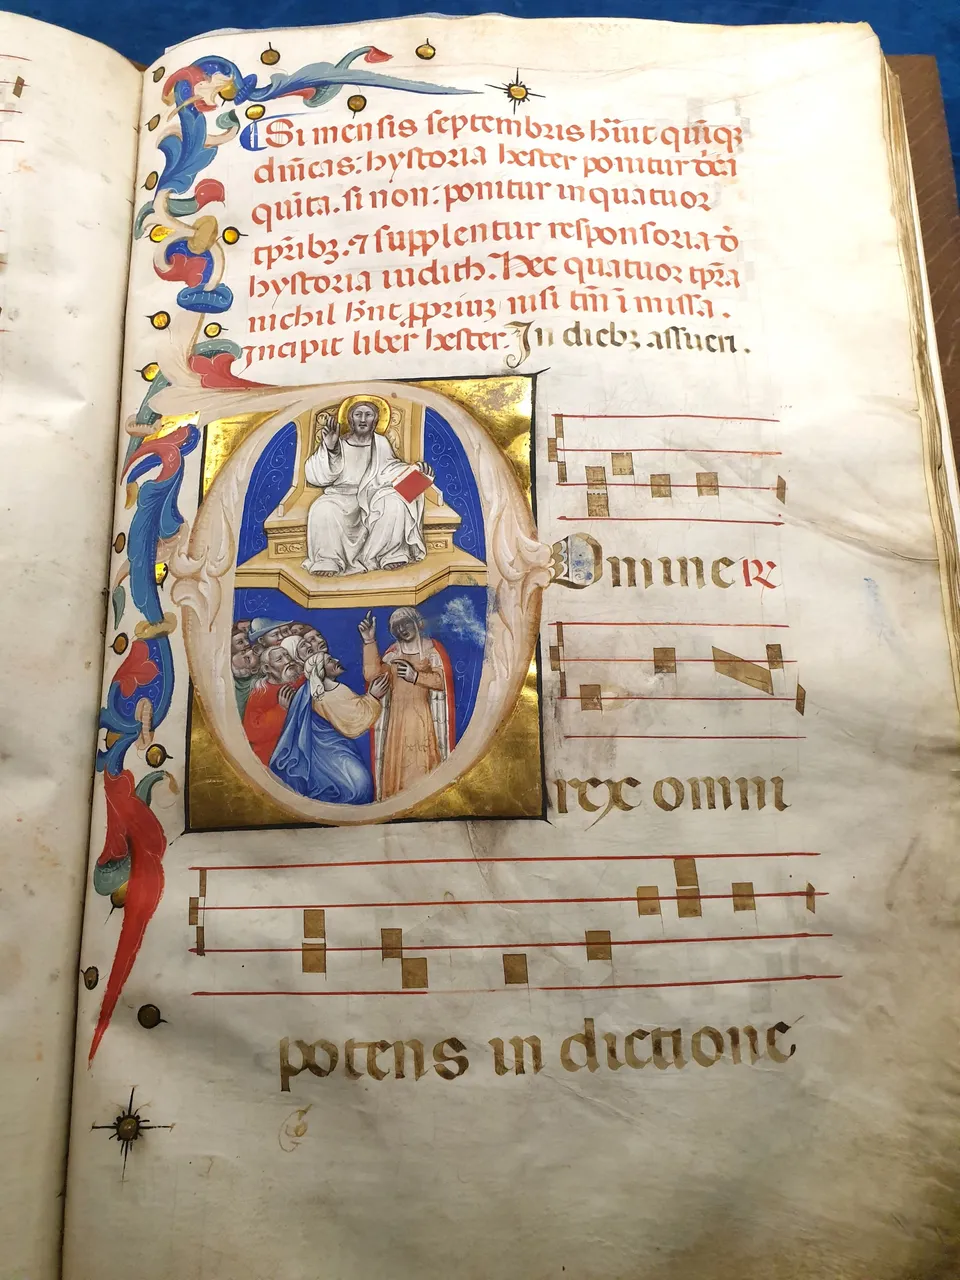 Si mensis septembris hn̄t quīq
dn̄icas: hystoria hester ponitur
quīta. si non. ponitur in quatuor
tp̄ribꝫ. ⁊ supplentur responsoria
hystoria iudith. Hec quatuor tp̄ra
nichil hn̄t ꝓpriuꝫ nisi tm̄ ī missa.
Incipit liber hester. In diebꝫ assueri.
Dmine rex
rex omni
potens in dictione